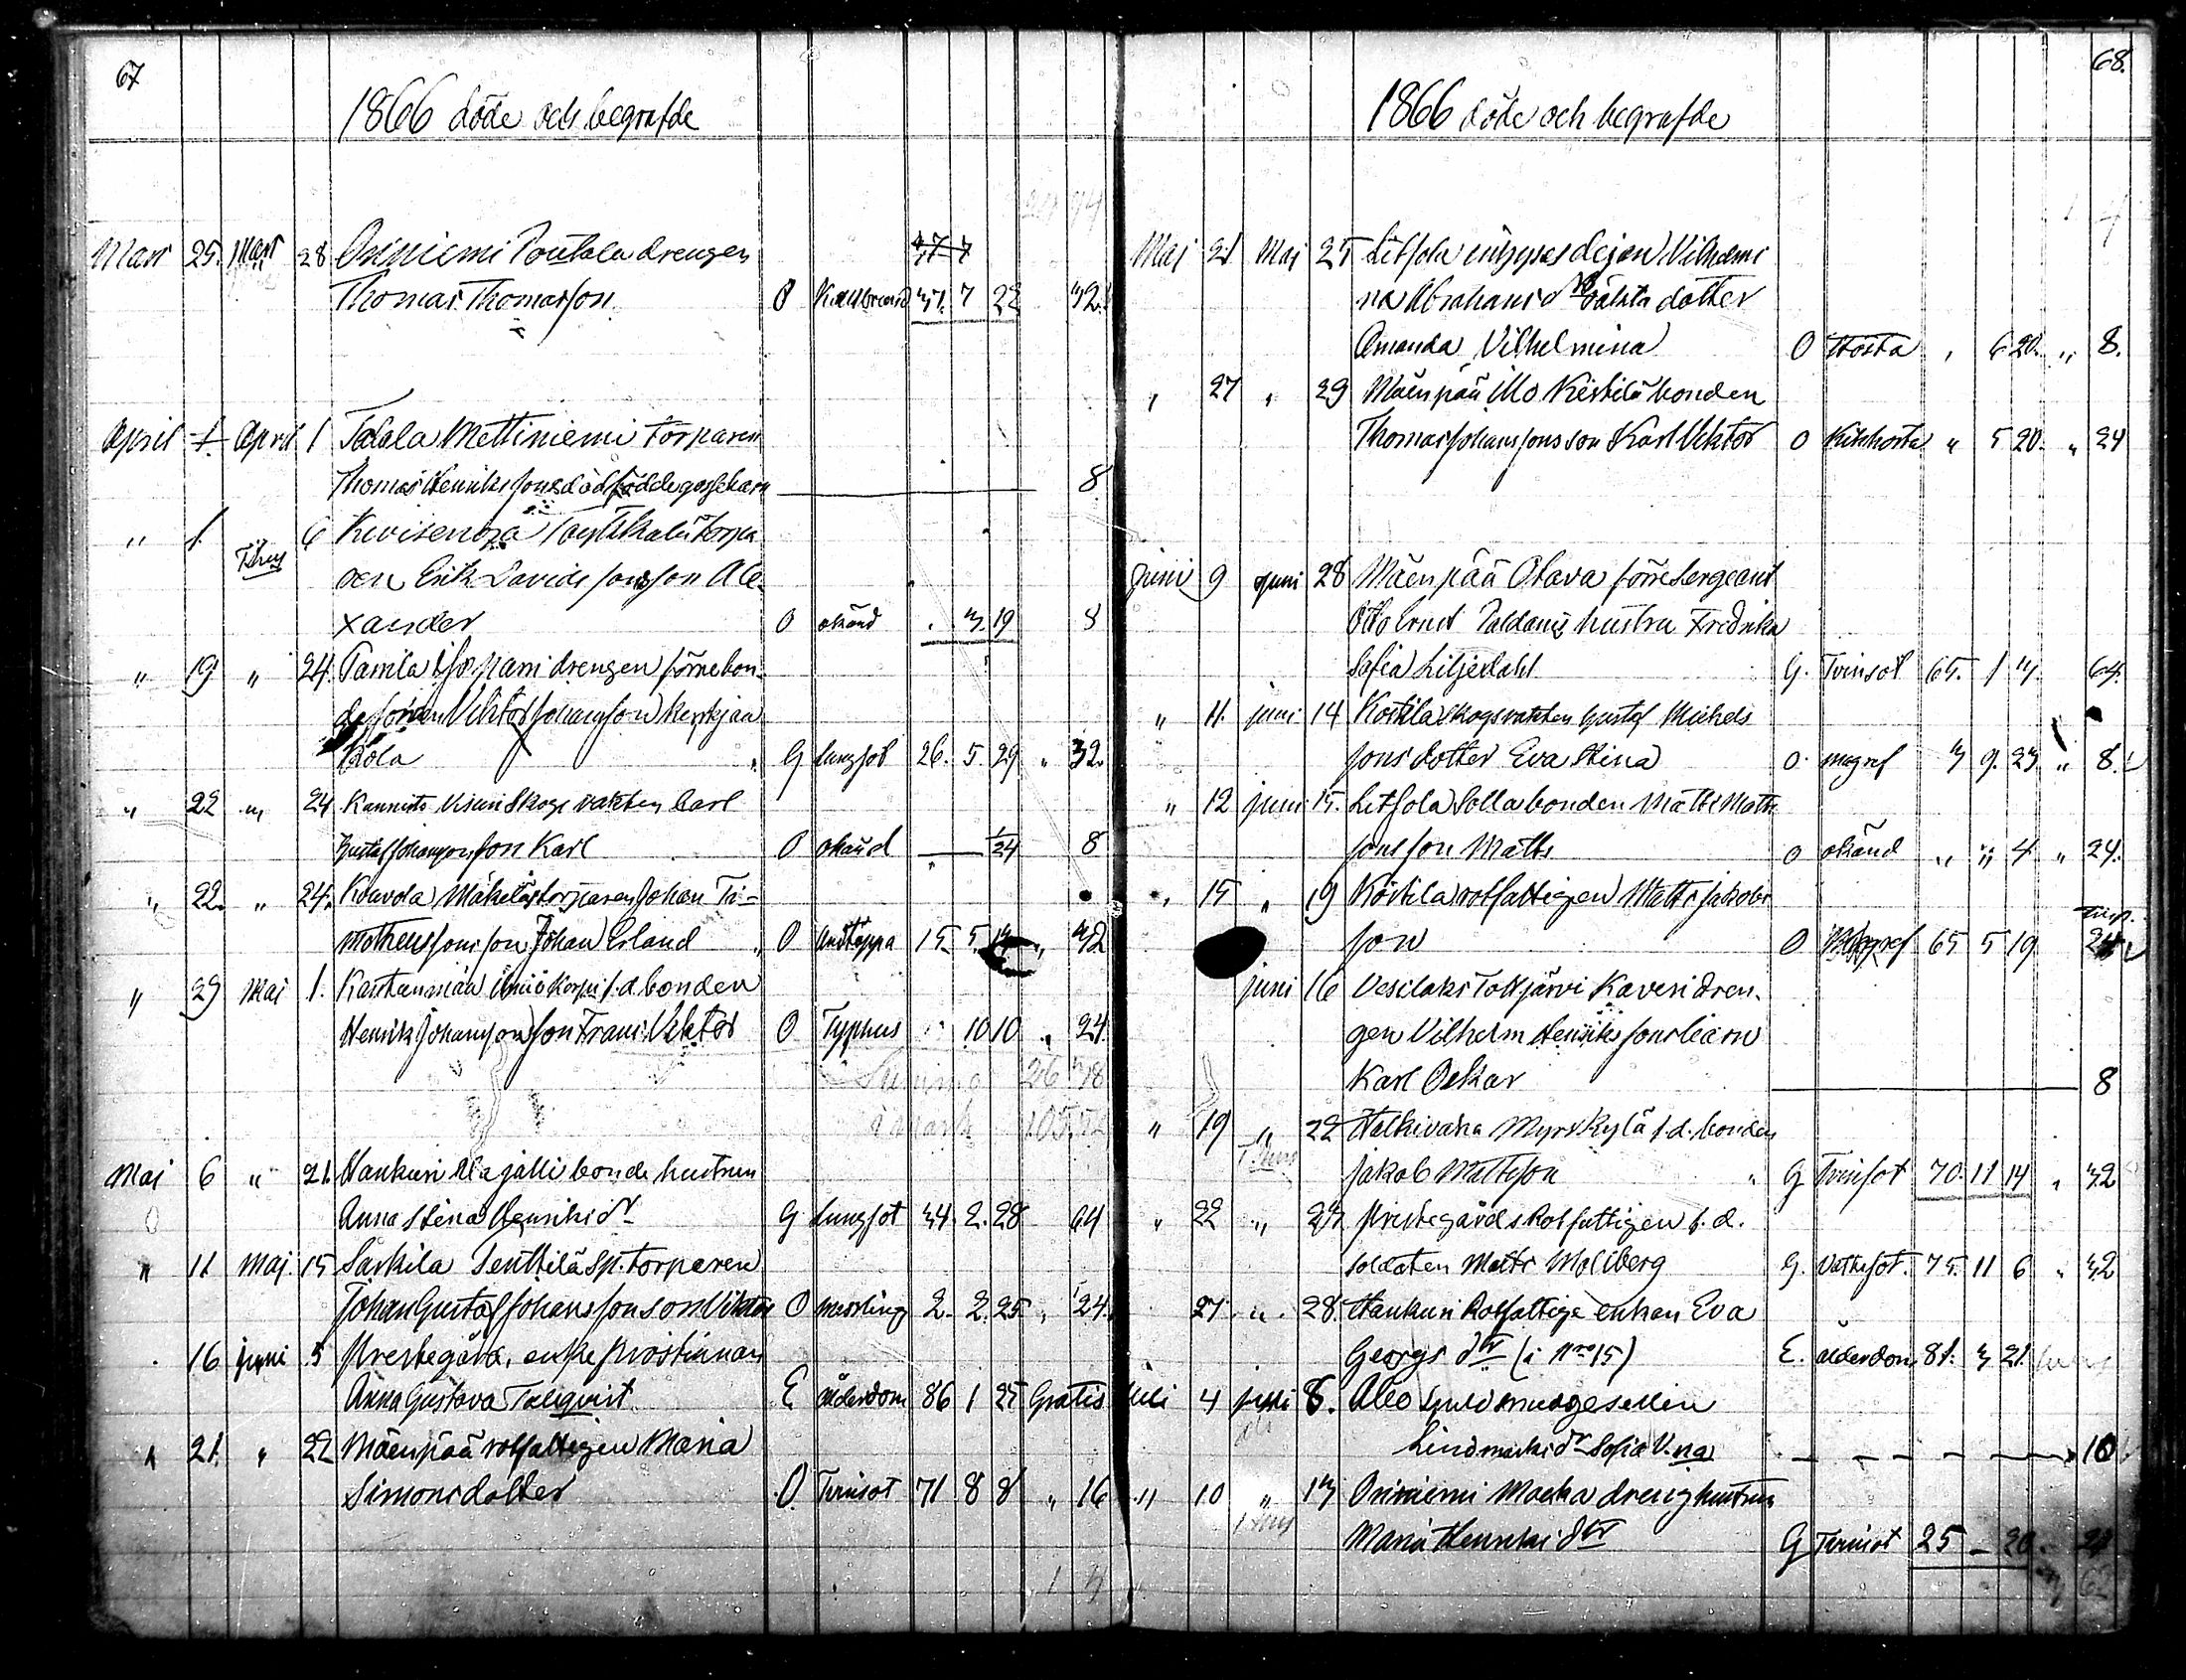 67
1866 döde och begrafde
Mars 25. Mars 28 Oriniemi Pontola drengen
Thomas Thomasson O Kallbrand 31. 7 22 32.
April 1 April 1 Talala Mettiniemi torparen
Thomas Henrikssons dödfödde gossebarn 8
" 1. 6 Kivisenoja torpa
ren Erik Davidssons son Ale-
xander O okänd . 3 19 8
" 19 " 24. Tamila drengen förre bon-
desonen Viktor Johansson
Kola G lungsot 26. 5. 29 " 32.
" 22 " 24 Kannisto Visuri Skogsvakten Carl
Gustaf Johanssons son Karl O okänd 1/24 8
" 22. " 24. Kouvola Mäkelä torparen Johan Ti-
motheussons son Johan Erland O Andtäppa 15 5 " 32
" 29 Maj 1. Kaukenmäa f.d. bonden
Henrik Johansson son Frans Viktor O Typhus " 10 10 " 24.
Summa 26 38
Maj 6 " 21. Hankuri Alajälli bonde hustrun
Anna Stina Henriksdr G lungsot 34. 2. 28 64
" 11 Maj. 15 Sarkila Penttilä sp. torparen
Johan Gustaf Johanssons son Viktor O messling 2. 2. 25 " 24.
. 16 juni 5 Prestegård, enkeprostinnan
Anna Gustava Tallqvist E ålderdom 86 1 25 Gratis
" 21. " 22 Mäenpää rotfattigen Maria
Simonsdotter O Tvinsot 71 8 8 " 16
68.
1866 döde och begrafde
Maj 21 Maj 25 Litsola inhyses dejan Vilhelmi
na Abrahamsdr oäkta dotter
Amanda Vilhelmina O Hosta , 6 20. " 8.
" 27 " 29 Mäenpää Illo Kestilä bonden
Thomas Johanssons son Karl Viktor O Kikhosta " 5 20. " 24
Juni 9 Juni 28 Mäenpää Otava förre Sergeant
Otto Ernst Paldanis hustru Fredrika
Sofia Liljedahl G. Tvinsot 65. 1 3. 64.
" 11. juni 14 Köstilä Skogsvakten Gustaf Michels
sons dotter Eva Stina O. magref 3 9. 23 " 8.
" 12 juni 15. Litsola Solla bonden Matts Matts
sons son Matts O okänd " " 4 " 24.
" 15 " 19 Köstilä rotfattigen Matts Jakobs
son O Magref 65 5 19 24
juni 16 Vesilaks Tottjärvi Kaveri dren-
gen Vilhelm Henrikssons barn
Karl Oskar 8
" 19 " 22 Halkivaha Myrskylä f.d. bonden
Jakob Mattsson " G Tvinsot 70. 11 14 " 32
" 22 " 23 Prestegårds Rotfattigen f.d.
soldaten Matts Mollberg G. Vattusot. 75. 11 6 " 32
27 " 28. Hankuri Rotfattige enkan Eva
Georgs dtr (i No 15) E. ålderdom 81. 3 21.
Juli 4 juli 8. Åbo Guldsmedgesellen
Lindmarks dr Sofia V.na 10
" 10 " 13 Oriniemi Maska dreng hustrun
Maria Henriks dtr G Tvinsot 25 – 20. 24